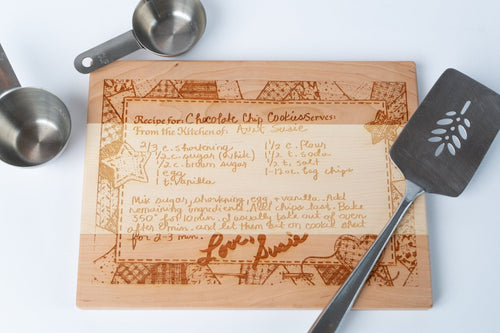 Recipe for: Chocolate Chip Cookies Serves:
From the Kitchen of: Aunt Susie
2/3 c. shortening 1 1/2 c. flour
1/2 c. sugar (white) 1/2 t. soda
1/2 c. brown sugar 1/2 t. salt
1 egg 1-12 oz. bg chips
1 t. vanilla
Mix sugar, shortening, egg, + vanilla. Add
remaining ingredients. Add chips last. Bake
350° for 10 min. I usually take out of oven
after 9 min. and let them set on cookie sheet
for 2-3 min. Love, Susie